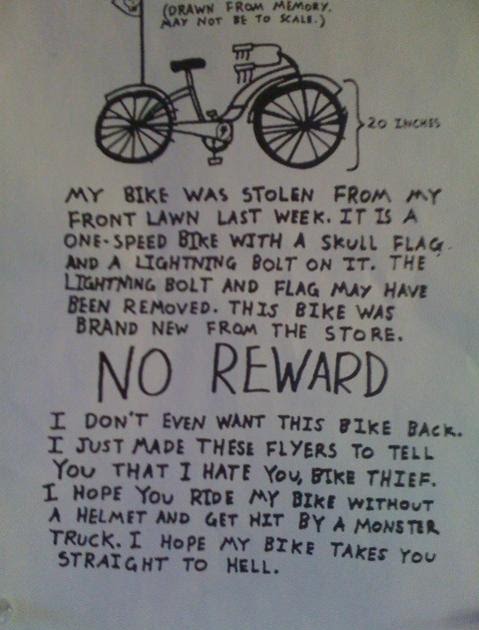 (DRAWN FROM MEMORY.
MAY NOT BE TO SCALE.)
20 INCHES
MY BIKE WAS STOLEN FROM MY
FRONT LAWN LAST WEEK. IT IS A
ONE-SPEED BIKE WITH A SKULL FLAG
AND A LIGHTNING BOLT ON IT. THE
LIGHTNING BOLT AND FLAG MAY HAVE
BEEN REMOVED. THIS BIKE WAS
BRAND NEW FROM THE STORE.
NO REWARD
I DON'T EVEN WANT THIS BIKE BACK.
I JUST MADE THESE FLYERS TO TELL
YOU THAT I HATE YOU, BIKE THIEF.
I HOPE YOU RIDE MY BIKE WITHOUT
A HELMET AND GET HIT BY A MONSTER
TRUCK. I HOPE MY BIKE TAKES YOU
STRAIGHT TO HELL.